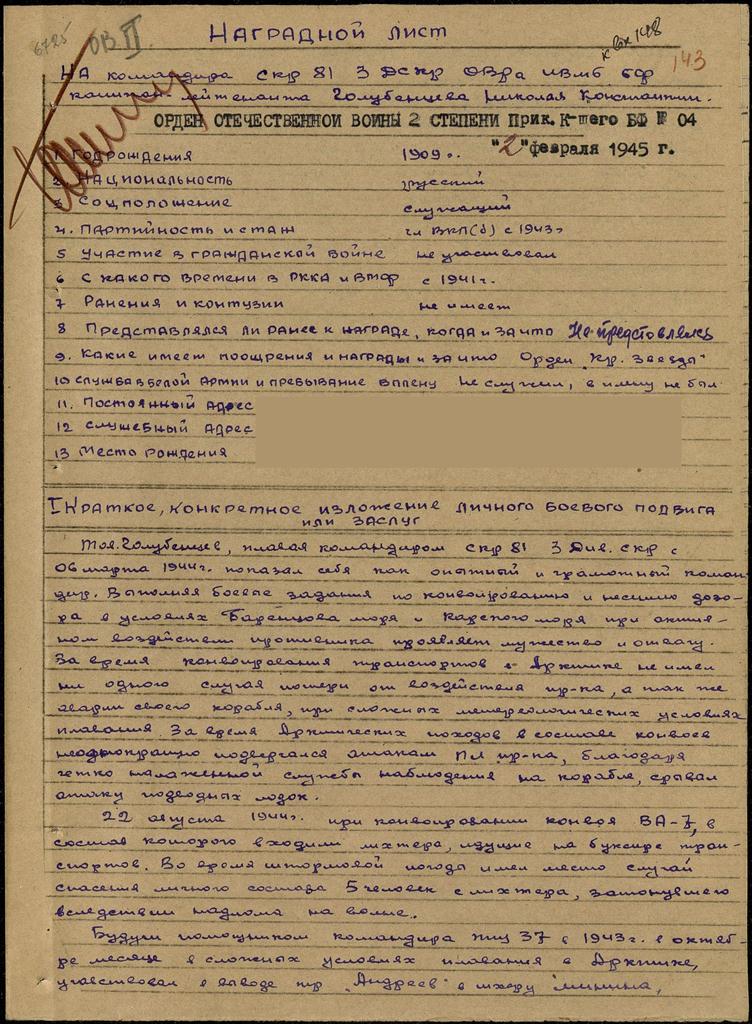 6725 ОВ II
НАГРАДНОЙ ЛИСТ
к вх 148
143
НА командира СКР 81 3 ДСКР ОВРа ИВМБ БФ
капитан-лейтенанта Голубенцева Николая Константин.
ОРДЕН ОТЕЧЕСТВЕННОЙ ВОЙНЫ 2 СТЕПЕНИ Прик. К-щего БФ № 04
"2" февраля 1945 г.
1. Год рождения 1909 г.
2. Национальность русский
3 Соцположение служащий
4. Партийность и стаж чл ВКП(б) с 1943г
5 Участие в гражданской войне не участвовал
6 С какого времени в РККА и ВМФ с 1941г.
7 Ранения и контузии не имеет
8 Представлялся ли ранее к награде, когда и за что Не представлялся
9. Какие имеет поощрения и награды и за что Орден "Кр. Звезда"
10 Служба в белой армии и пребывание в плену Не служил, в плену не был
11. Постоянный адрес
12 Служебный адрес
13 Место рождения
I Краткое, конкретное изложение личного боевого подвига
или заслуг
Тов. Голубенцев, плавая командиром СКР 81 3 Див. СКР с
06 марта 1944г. показал себя как опытный и грамотный коман-
дир. Выполняя боевые задания по конвоированию и несению дозо-
ра в условиях Баренцова моря и Карского моря при актив-
ном воздействии противника проявляет мужество и отвагу.
За время конвоирования транспортов в Арктике не имел
ни одного случая потери от воздействия пр-ка, а так же
аварии своего корабля, при сложных метереологических условиях
плавания За время Арктических походов в составе конвоев
неоднократно подвергался атакам ПЛ пр-ка, благодаря
четко налаженной службы наблюдения на корабле, срывал
атаку подводных лодок.
22 августа 1944г. при конвоировании конвоя ВА-7, в
состав которого входили лихтера, идущие на буксире тран-
спортов. Во время штормовой погоды имел место случай
спасения личного состава 5 человек с лихтера, затонувшего
вследствии надлома на волне.
Будучи помощником командира ТЩ 37 с 1943г. в октяб-
ре месяце в сложных условиях плавания в Арктике,
участвовал в выводе тр "Андреев" в шхеру Минина,